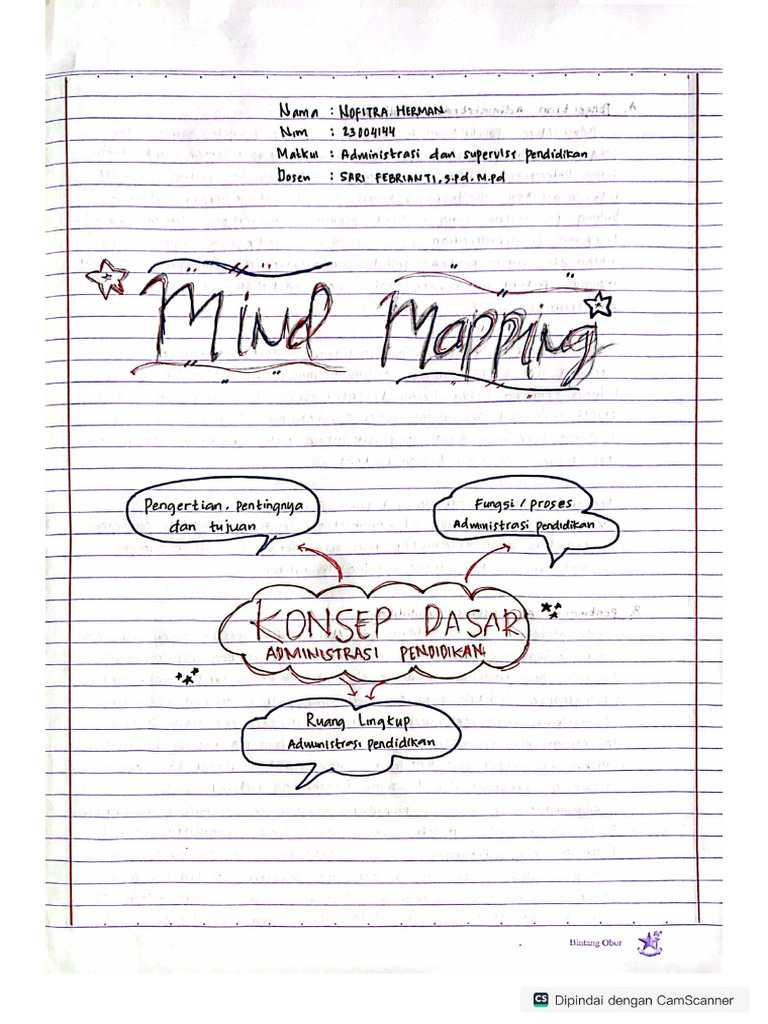 Nama : NOFITRA HERMAN
Nim : 23004144
Matkul : Administrasi dan supervisi pendidikan
Dosen : SARI FEBRIANTI, S.pd. M.pd
Mind Mapping
Pengertian, pentingnya
dan tujuan
Fungsi / proses
Administrasi pendidikan
KONSEP DASAR
ADMINISTRASI PENDIDIKAN
Ruang Lingkup
Administrasi pendidikan
Bintang Obor
CS Dipindai dengan CamScanner